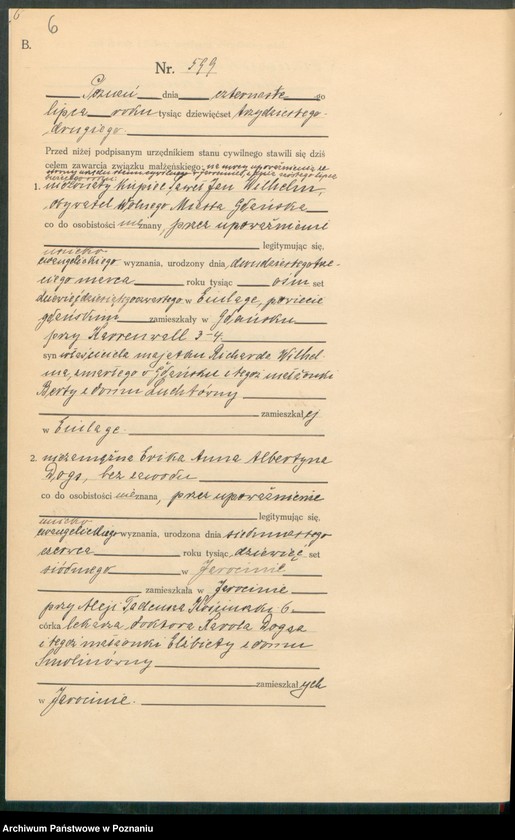 6
6
B.
Nr. 599
Poznań dnia czternasto go
lipca roku tysiąc dziewięćset trzydziestego
drugiego.
Przed niżej podpisanym urzędnikiem stanu cywilnego stawili się dziś
celem zawarcia związku małżeńskiego: na mocy upoważnienia
urzędu stanu cywilnego w Jarocinie z dnia lipca
roku
1. nieżonaty kupiec Jan Wilhelm,
obywatel Wolnego Miasta Gdańska
co do osobistości nieznany, przez upoważnienie
legitymując się,
ewangelickiego wyznania, urodzony dnia dwudziestego trze-
ciego marca roku tysiąc ośm set
dziewięćdziesiątego czwartego w Einlage, powiecie
gdańskim zamieszkały w Gdańsku
przy Karrenwall 3-4
syn właściciela majątku Richarda Wilhel-
ma, zmarłego w Gdańsku i tegoż małżonki
Berty z domu
zamieszkałej
w Einlage.
2. niezamężna Erika Anna Albertyna
Dogs, bez zawodu
co do osobistości nieznana, przez upoważnienie
legitymując się,
ewangelickiego wyznania, urodzona dnia siedmnastego
czerwca roku tysiąc dziewięć set
siódmego w Jarocinie
zamieszkała w Jarocinie
przy Aleji Tadeusza Kościuszki 6
córka lekarza doktora Karola Dogsa
i tegoż małżonki Elżbiety z domu
zamieszkałych
w Jarocinie.
Archiwum Państwowe w Poznaniu